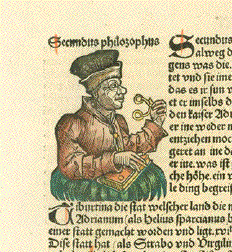 Secundus philosophus
Secundus
Salweg d
gens was die.
tet vnd sie ine
das es ir sun v
et er imselbs d
den kaiser Adri
er ine weder m
entziehen moc
geret an ine de
er ine. was ist
che höhe. ein v
le ding begreif
Tiburtina die stat welscher land die n
Adrianum / als Helius sparcianus b
einer statt gemacht worden vnd ligt. xvi
Dise statt hat / als Strabo vnd Virgiliu